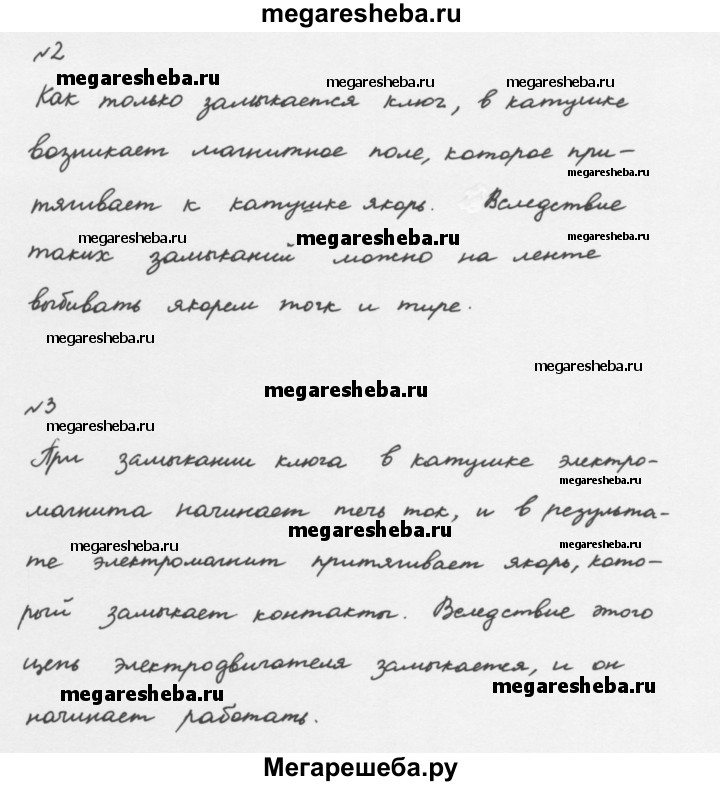 megaresheba.ru
№2
megaresheba.ru megaresheba.ru megaresheba.ru
Как только замыкается ключ, в катушке
возникает магнитное поле, которое при-
megaresheba.ru
тягивает к катушке якорь. Вследствие
megaresheba.ru megaresheba.ru megaresheba.ru
таких замыканий можно на ленте
выбивать якорем точк и тире.
megaresheba.ru
megaresheba.ru
megaresheba.ru
№3
megaresheba.ru
При замыкании ключа в катушке электро-
megaresheba.ru
магнита начинает течь ток, и в результа-
megaresheba.ru
megaresheba.ru megaresheba.ru
те электромагнит притягивает якорь, кото-
рый замыкает контакты. Вследствие этого
цепь электродвигателя замыкается, и он
megaresheba.ru megaresheba.ru
начинает работать.
Мегарешеба.ру